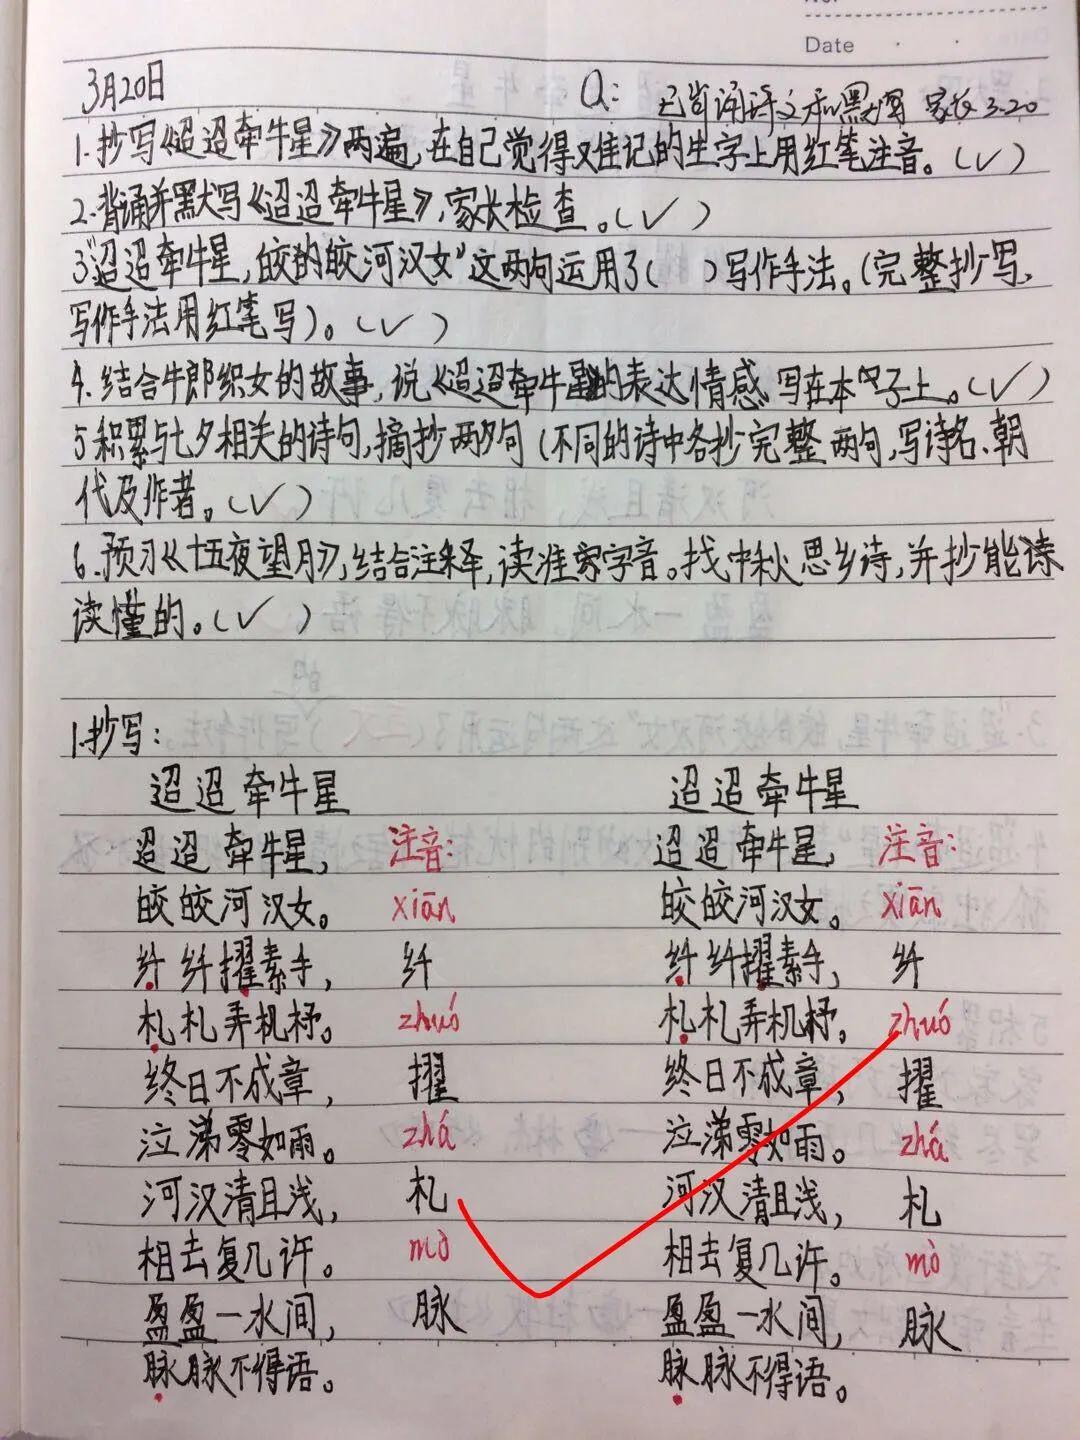 Date
3月20日 Q: 已背诵诗文和默写 家长 3.20
1.抄写《迢迢牵牛星》两遍,在自己觉得难记的生字上用红笔注音。(√)
2.背诵并默写《迢迢牵牛星》,家长检查。(√)
3."迢迢牵牛星,皎的皎河汉女"这两句运用了( )写作手法。(完整抄写,
写作手法用红笔写)。(√)
4.结合牛郎织女的故事,说《迢迢牵牛星》的表达情感,写在本子上。(√)
5积累与七夕相关的诗句,摘抄两句(不同的诗中各抄完整两句,写诗名、朝
代及作者。(√)
6.预习《十五夜望月》,结合注释,读准字音。找中秋思乡诗,并抄能读
读懂的。(√)
1.抄写:
迢迢牵牛星 迢迢牵牛星
迢迢牵牛星, 注音: 迢迢牵牛星, 注音:
皎皎河汉女。 xiān 皎皎河汉女。 xiān
纤纤擢素手, 纤 纤纤擢素手, 纤
札札弄机杼。 zhuó 札札弄机杼。 zhuó
终日不成章, 擢 终日不成章, 擢
泣涕零如雨。 zhá 泣涕零如雨。 zhá
河汉清且浅, 札 河汉清且浅, 札
相去复几许。 mò 相去复几许。 mò
盈盈一水间, 脉 盈盈一水间, 脉
脉脉不得语。 脉脉不得语。